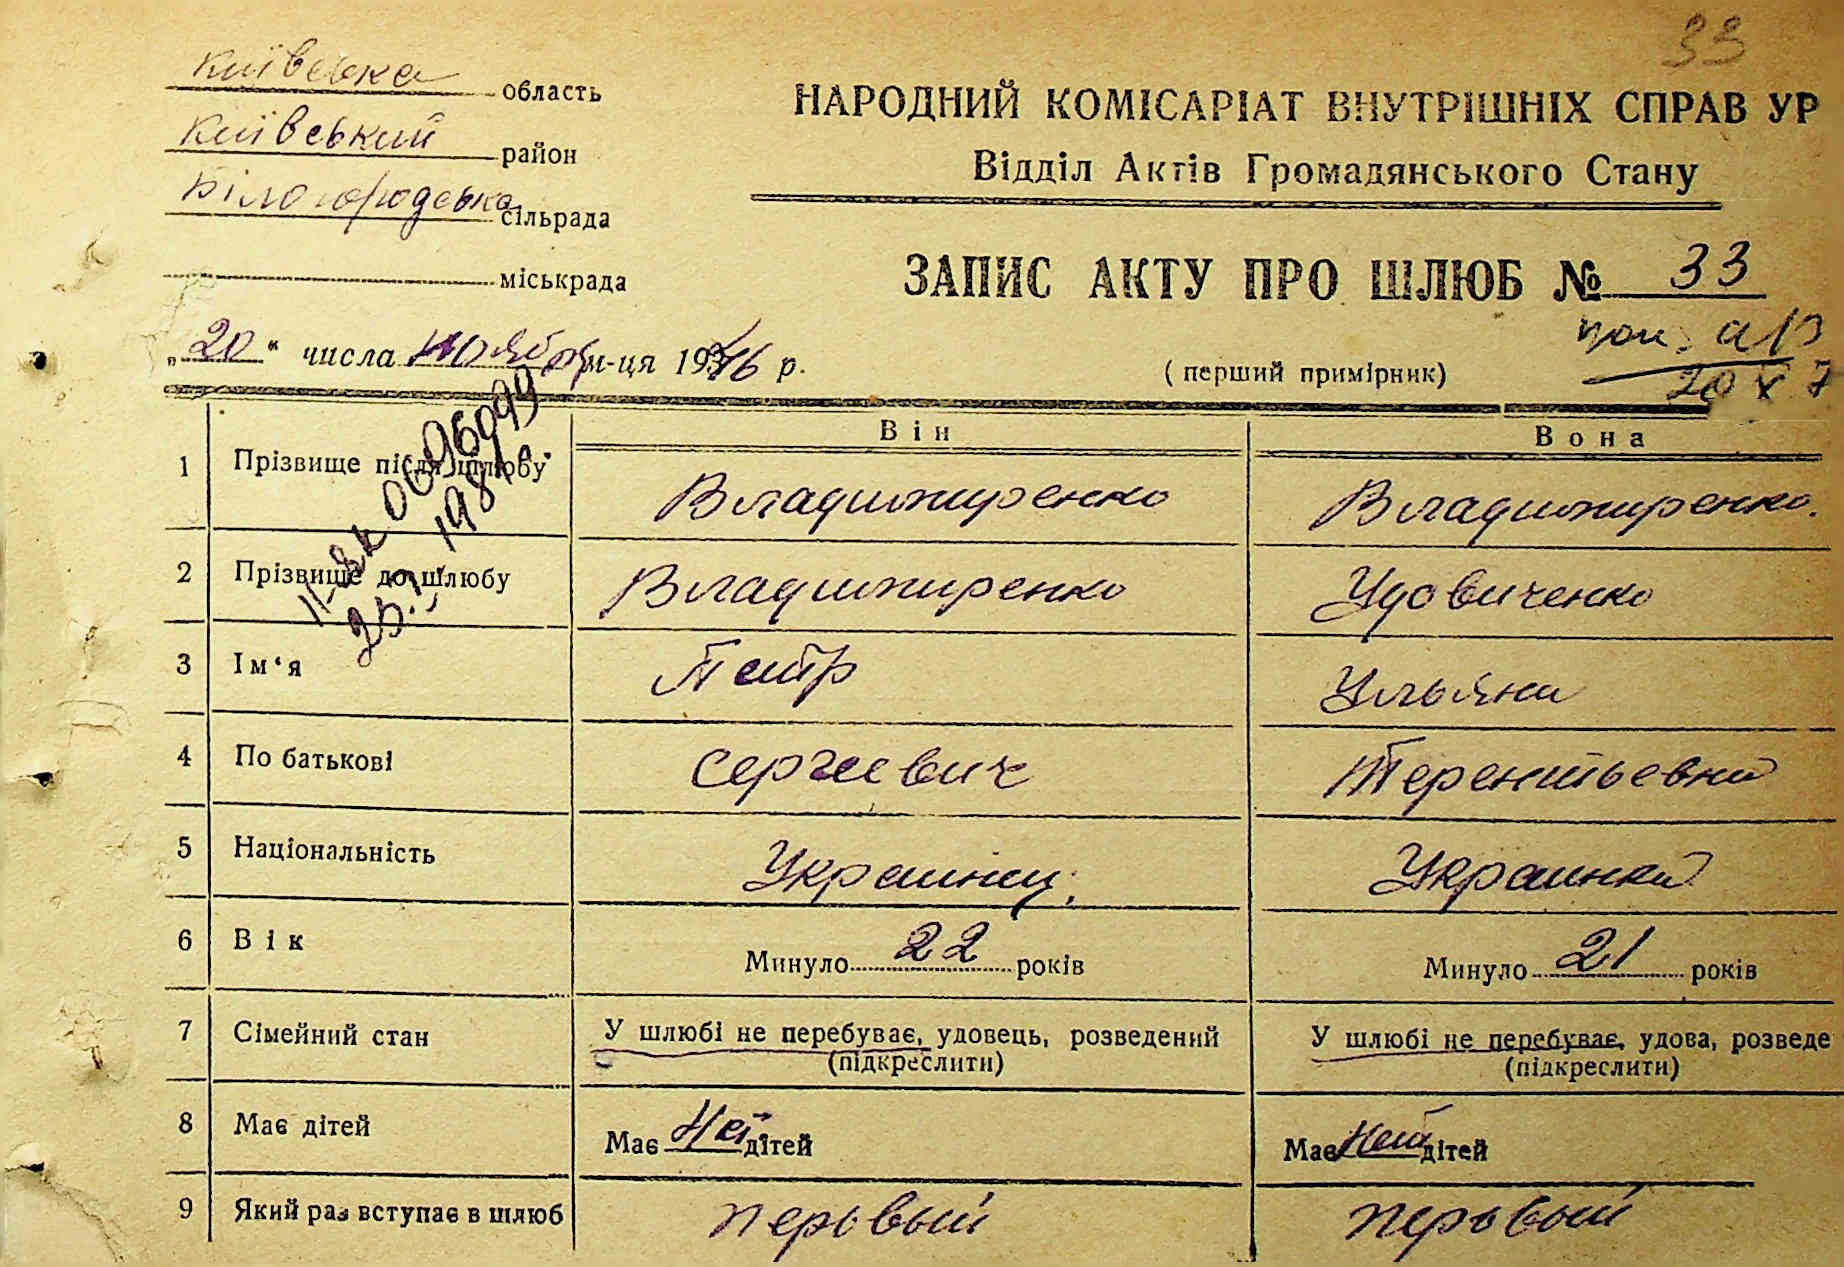 33
Київська область
Київський район
Білогородська сільрада
міськрада
НАРОДНИЙ КОМІСАРІАТ ВНУТРІШНІХ СПРАВ УР
Відділ Актів Громадянського Стану
ЗАПИС АКТУ ПРО ШЛЮБ № 33
„20“ числа ноября м-ця 1946 р.
(перший примірник)
20 X 7
Він Вона
1 Прізвище після шлюбу Владимиренко Владимиренко.
2 Прізвище до шлюбу Владимиренко Удовиченко
3 Ім‘я Петр Ульяна
4 По батькові Сергеевич Терентьевна
5 Національність Украинец. Украинка
6 Вік Минуло 22 років Минуло 21 років
7 Сімейний стан У шлюбі не перебуває, удовець, розведений У шлюбі не перебуває, удова, розведе
(підкреслити) (підкреслити)
8 Має дітей Має нет дітей Має нет дітей
9 Який раз вступає в шлюб первый первый